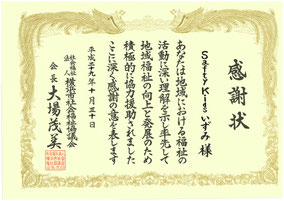 感謝状
Safty Kidsいずみ 様
あなたは地域における福祉の
活動に深い理解を示し率先して
地域福祉の向上と発展のため
積極的に協力援助されました
ここに深く感謝の意を表します
平成二十九年十月三十日
社会福祉法人 横浜市社会福祉協議会
会長 大場茂美